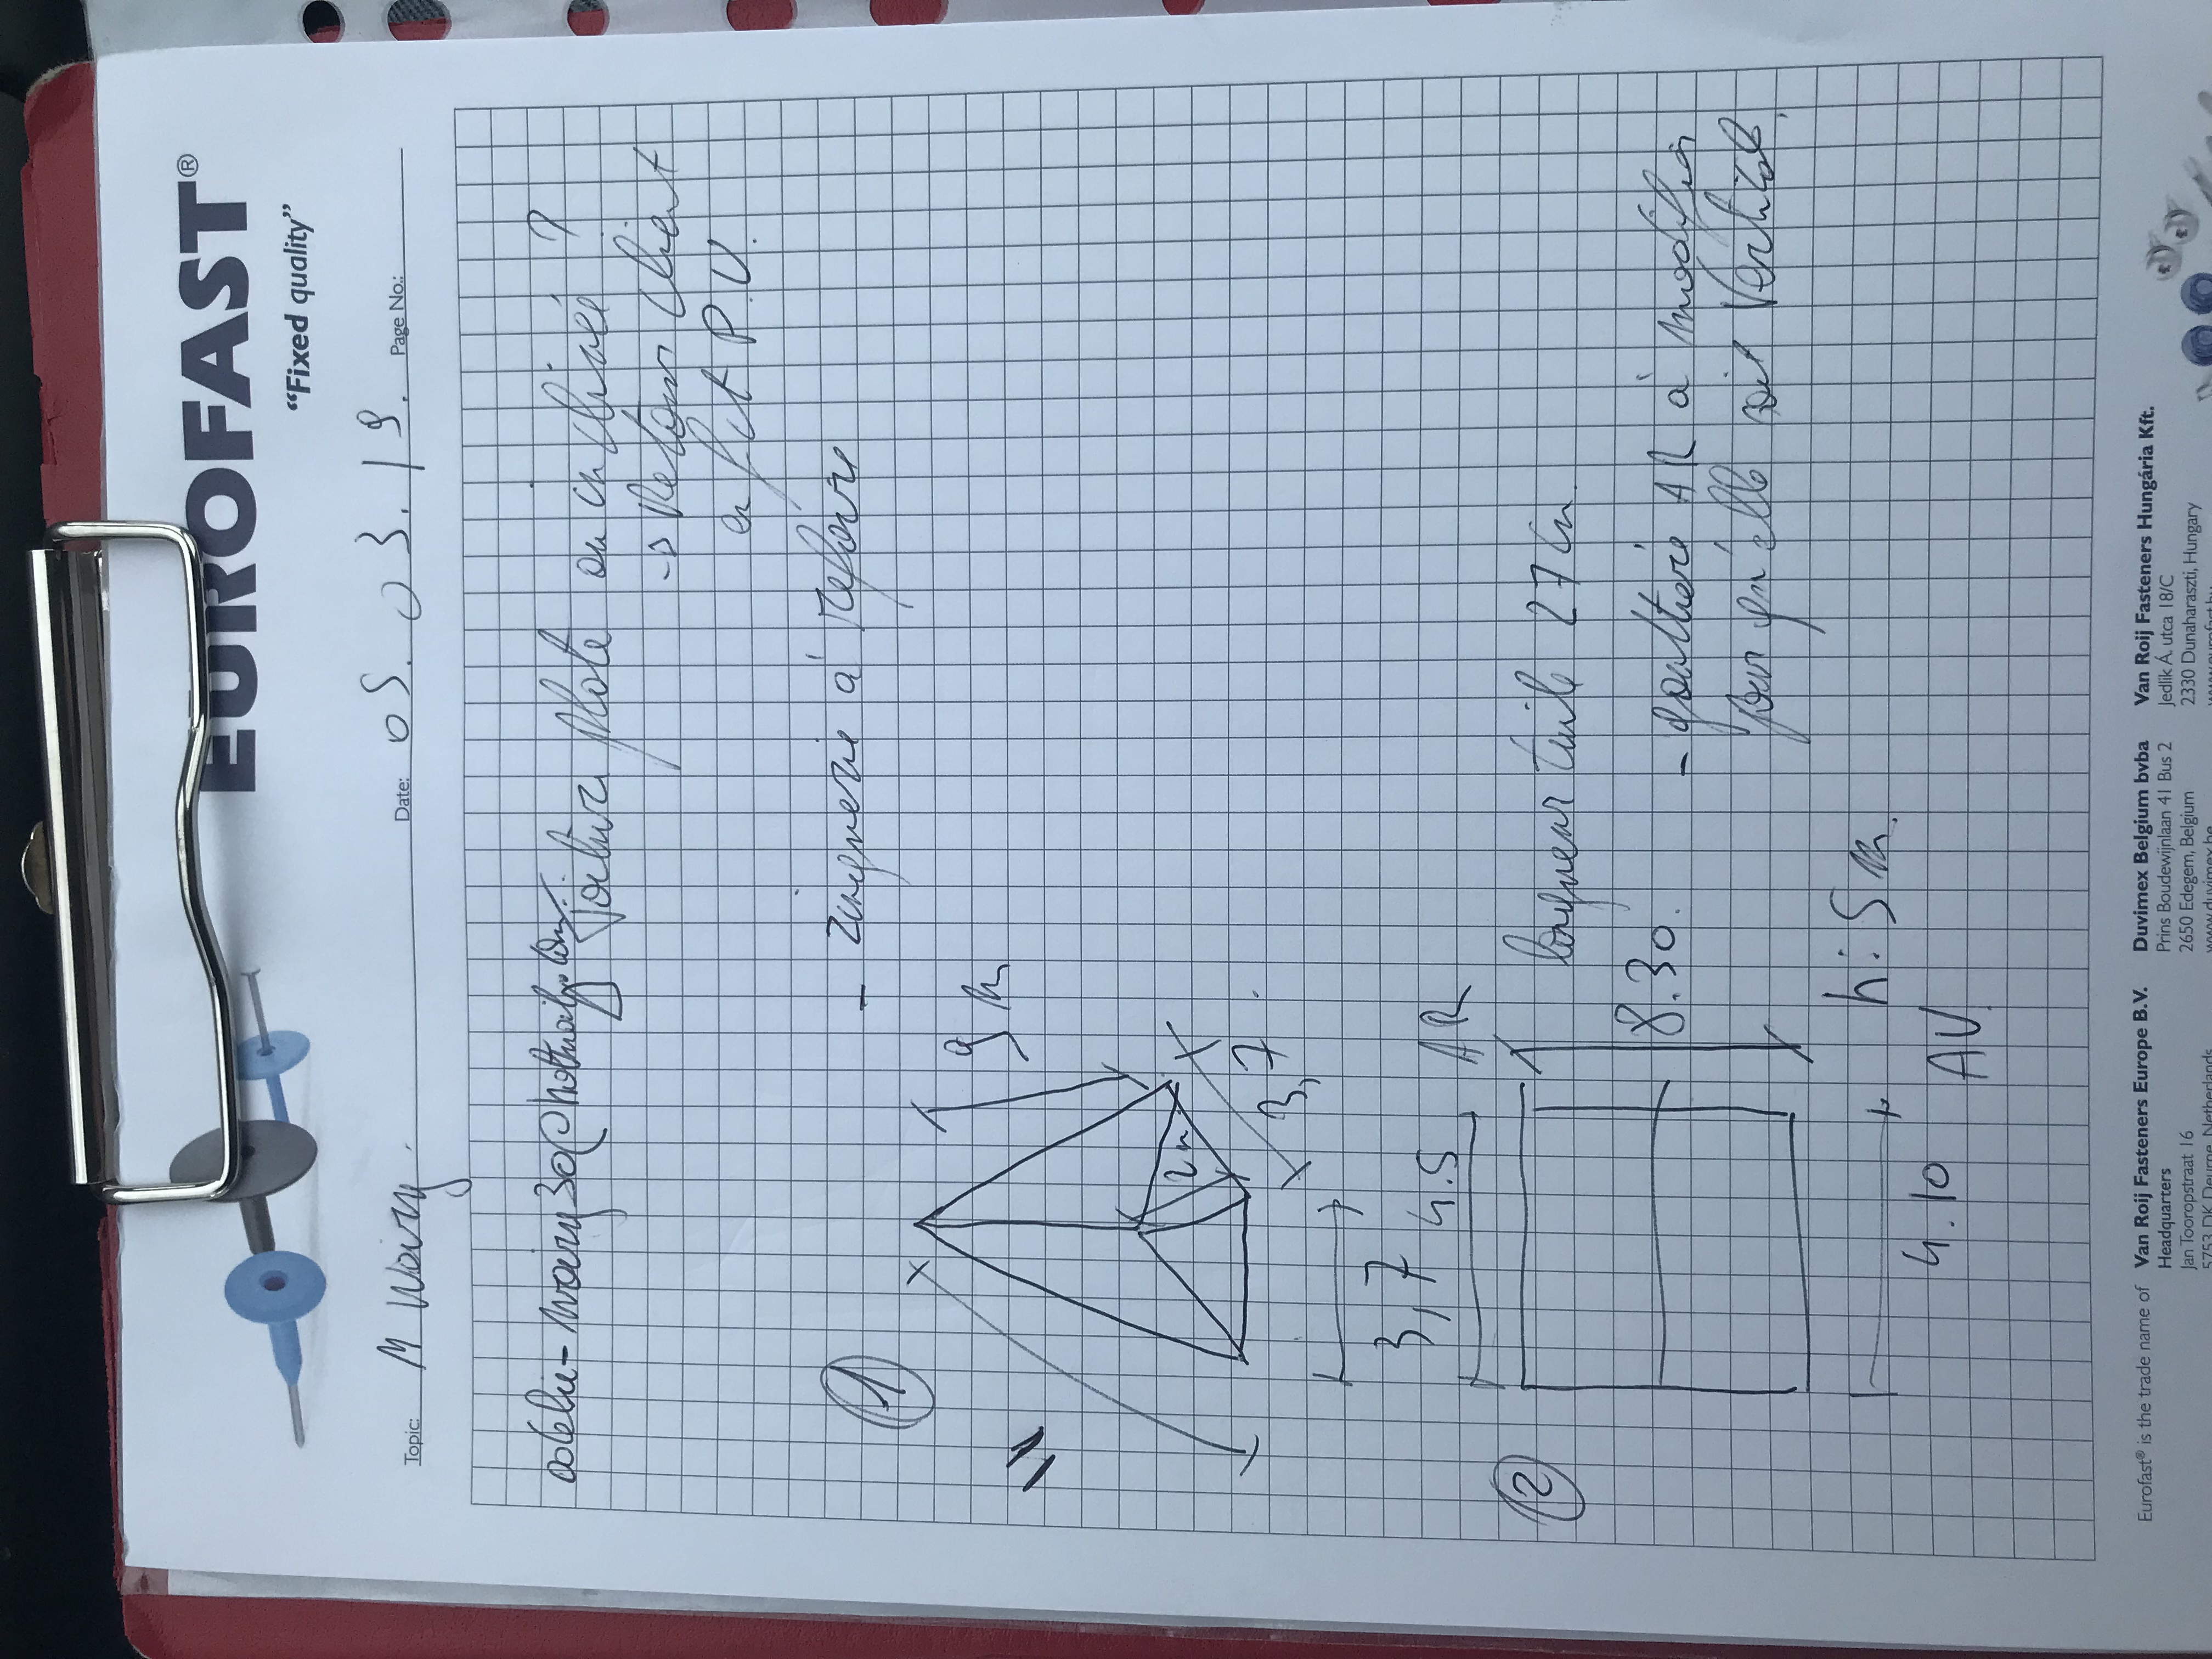 EUROFAST®
“Fixed quality”
Topic: M Woiry.
Date: 05.03.19.
Page No.:
toiture plate ou en
-> Retour client
en fct P.V.
- zinguerie à refaire
1
9 m
2 m
3,7
3,7
2
4.5
AR
longueur tuile 27 cm.
8.30.
- gouttière AR à modifier
pour qu'elle soit
h: 5 m.
4.10
AV
Eurofast® is the trade name of
Van Roij Fasteners Europe B.V.
Headquarters
Jan Tooropstraat 16
5753 DK Deurne, Netherlands
Duvimex Belgium bvba
Prins Boudewijnlaan 41 Bus 2
2650 Edegem, Belgium
www.duvimex.be
Van Roij Fasteners Hungária Kft.
Jedlik Á. utca 18/C
2330 Dunaharaszti, Hungary